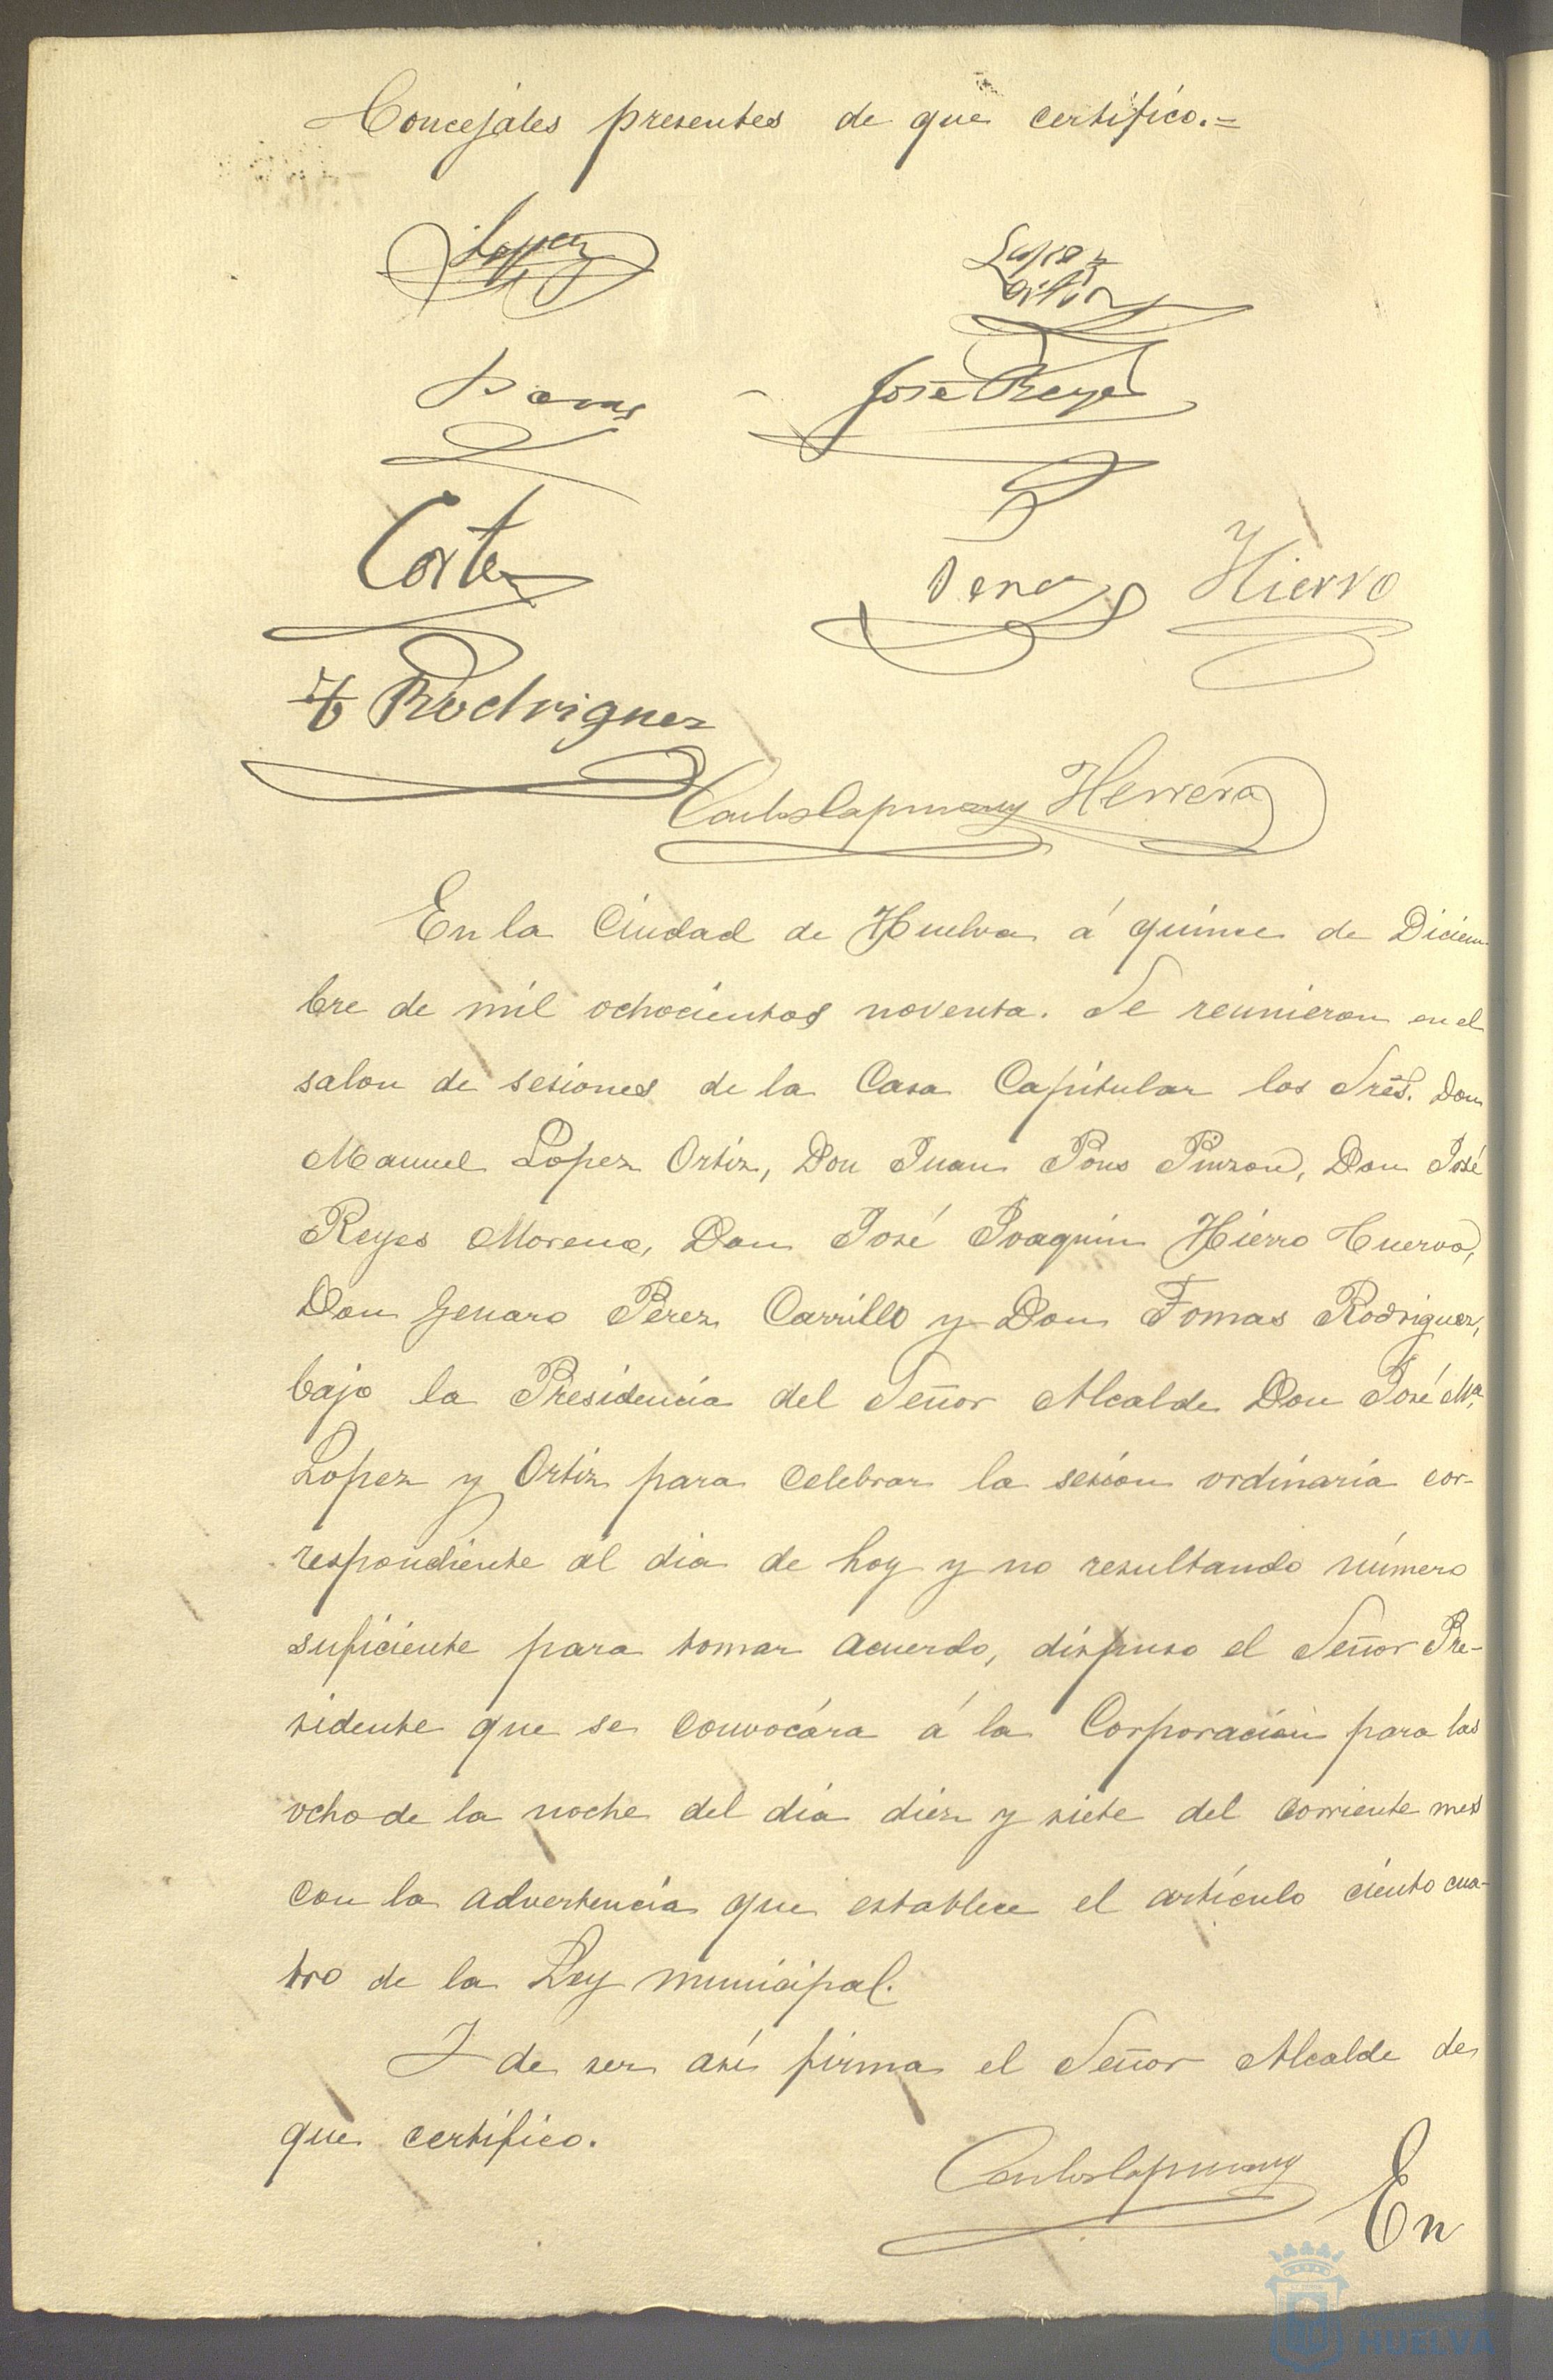 Concejales presentes de que certifico.=
Lopez
Lopez
Ortiz
José Reyes
Cortes
Perez Hierro
T Rodriguez
Carlos Capmany Herrera
En la Ciudad de Huelva á quince de Diciem
bre de mil ochocientos noventa. Se reunieron en el
salon de sesiones de la Casa Capitular los Sres. Don
Manuel Lopez Ortiz, Don Juan Pons Pinzon, Don José
Reyes Moreno, Don José Joaquin Hierro Cuervo,
Don Genaro Perez Carrillo y Don Tomas Rodriguez,
bajo la Presidencia del Señor Alcalde Don José Mª
Lopez y Ortiz para celebrar la sesion ordinaria cor-
respondiente al dia de hoy y no resultando número
suficiente para tomar acuerdo, dispuso el Señor Pre-
sidente que se convocára á la Corporacion para las
ocho de la noche del dia diez y siete del corriente mes
con la advertencia que establece el artículo ciento cua-
tro de la Ley municipal.
Y de ser así firma el Señor Alcalde de
que certifico.
Carlos Capmany
En
HUELVA